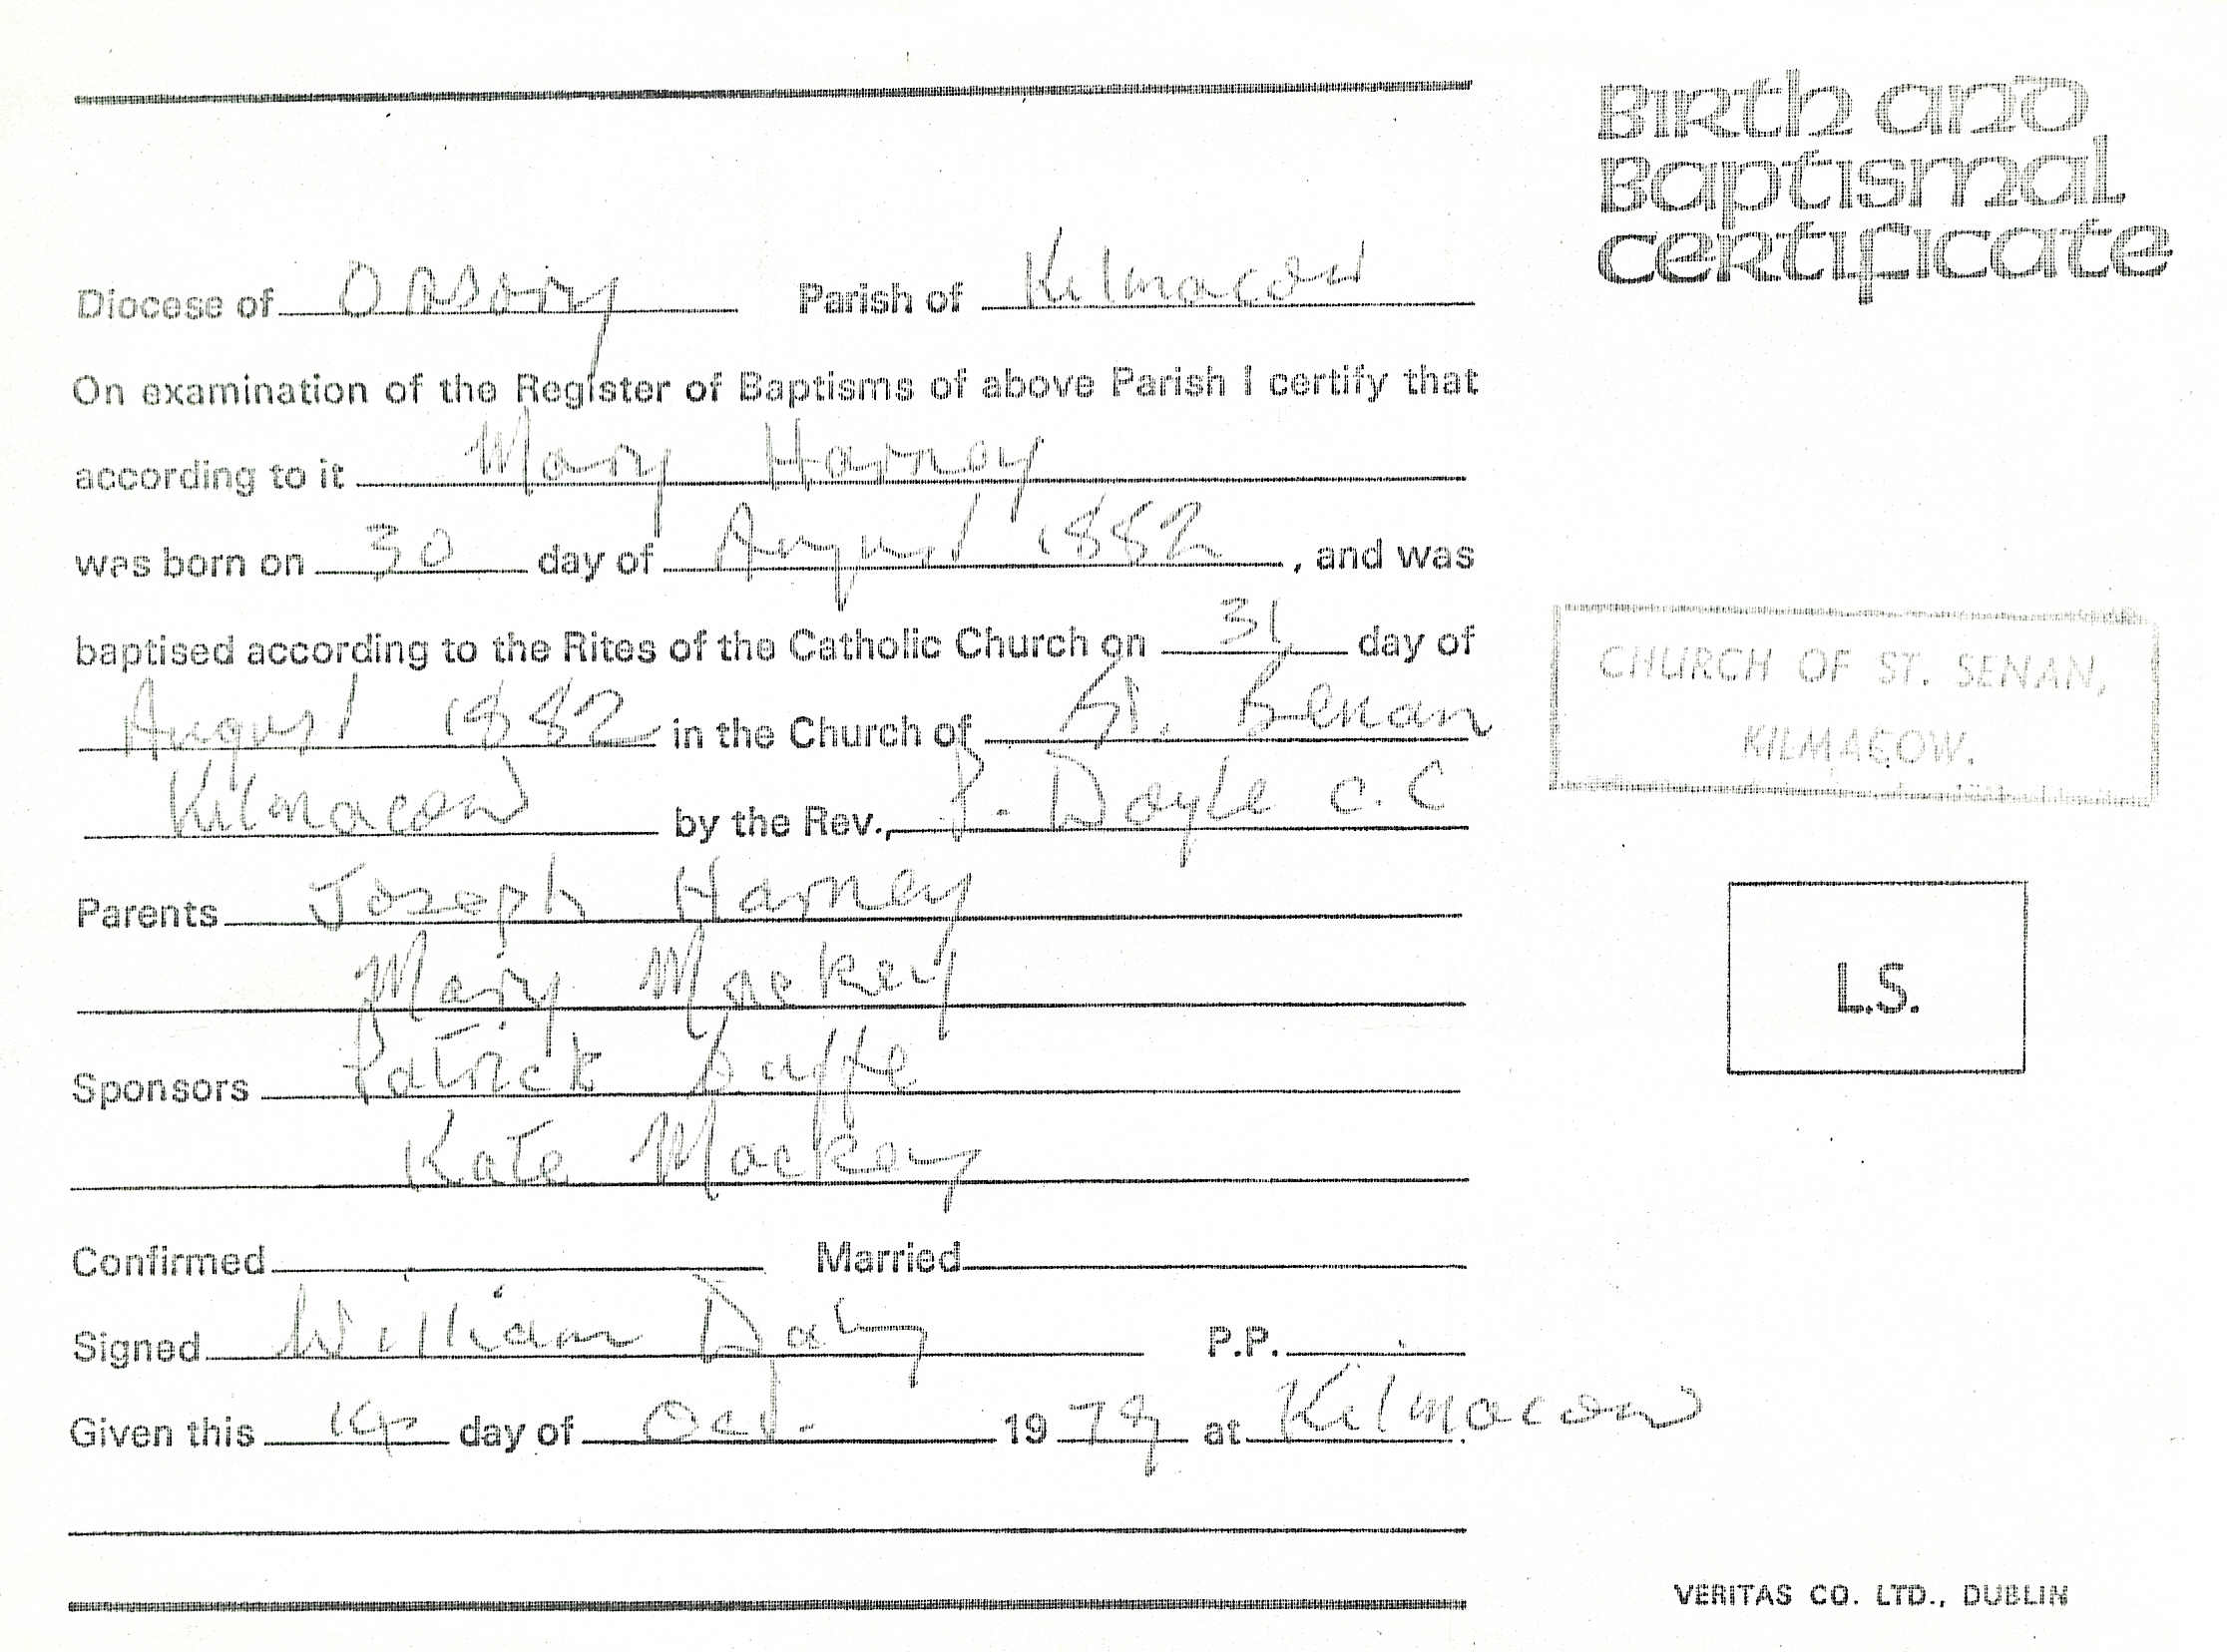 Birth and
Baptismal
Certificate
Diocese of Ossory Parish of Kilmacow
On examination of the Register of Baptisms of above Parish I certify that
according to it Mary Harney
was born on 30 day of August 1882, and was
baptised according to the Rites of the Catholic Church on 31 day of
August 1882 in the Church of St. Senan
Kilmacow by the Rev., Doyle C.C
Parents Joseph Harney
Mary Mackey
Sponsors Patrick
Kate Mackey
Confirmed Married
Signed William Daly P.P.
Given this 14 day of Oct. 1979 at Kilmacow
CHURCH OF ST. SENAN,
KILMACOW.
L.S.
VERITAS CO. LTD., DUBLIN